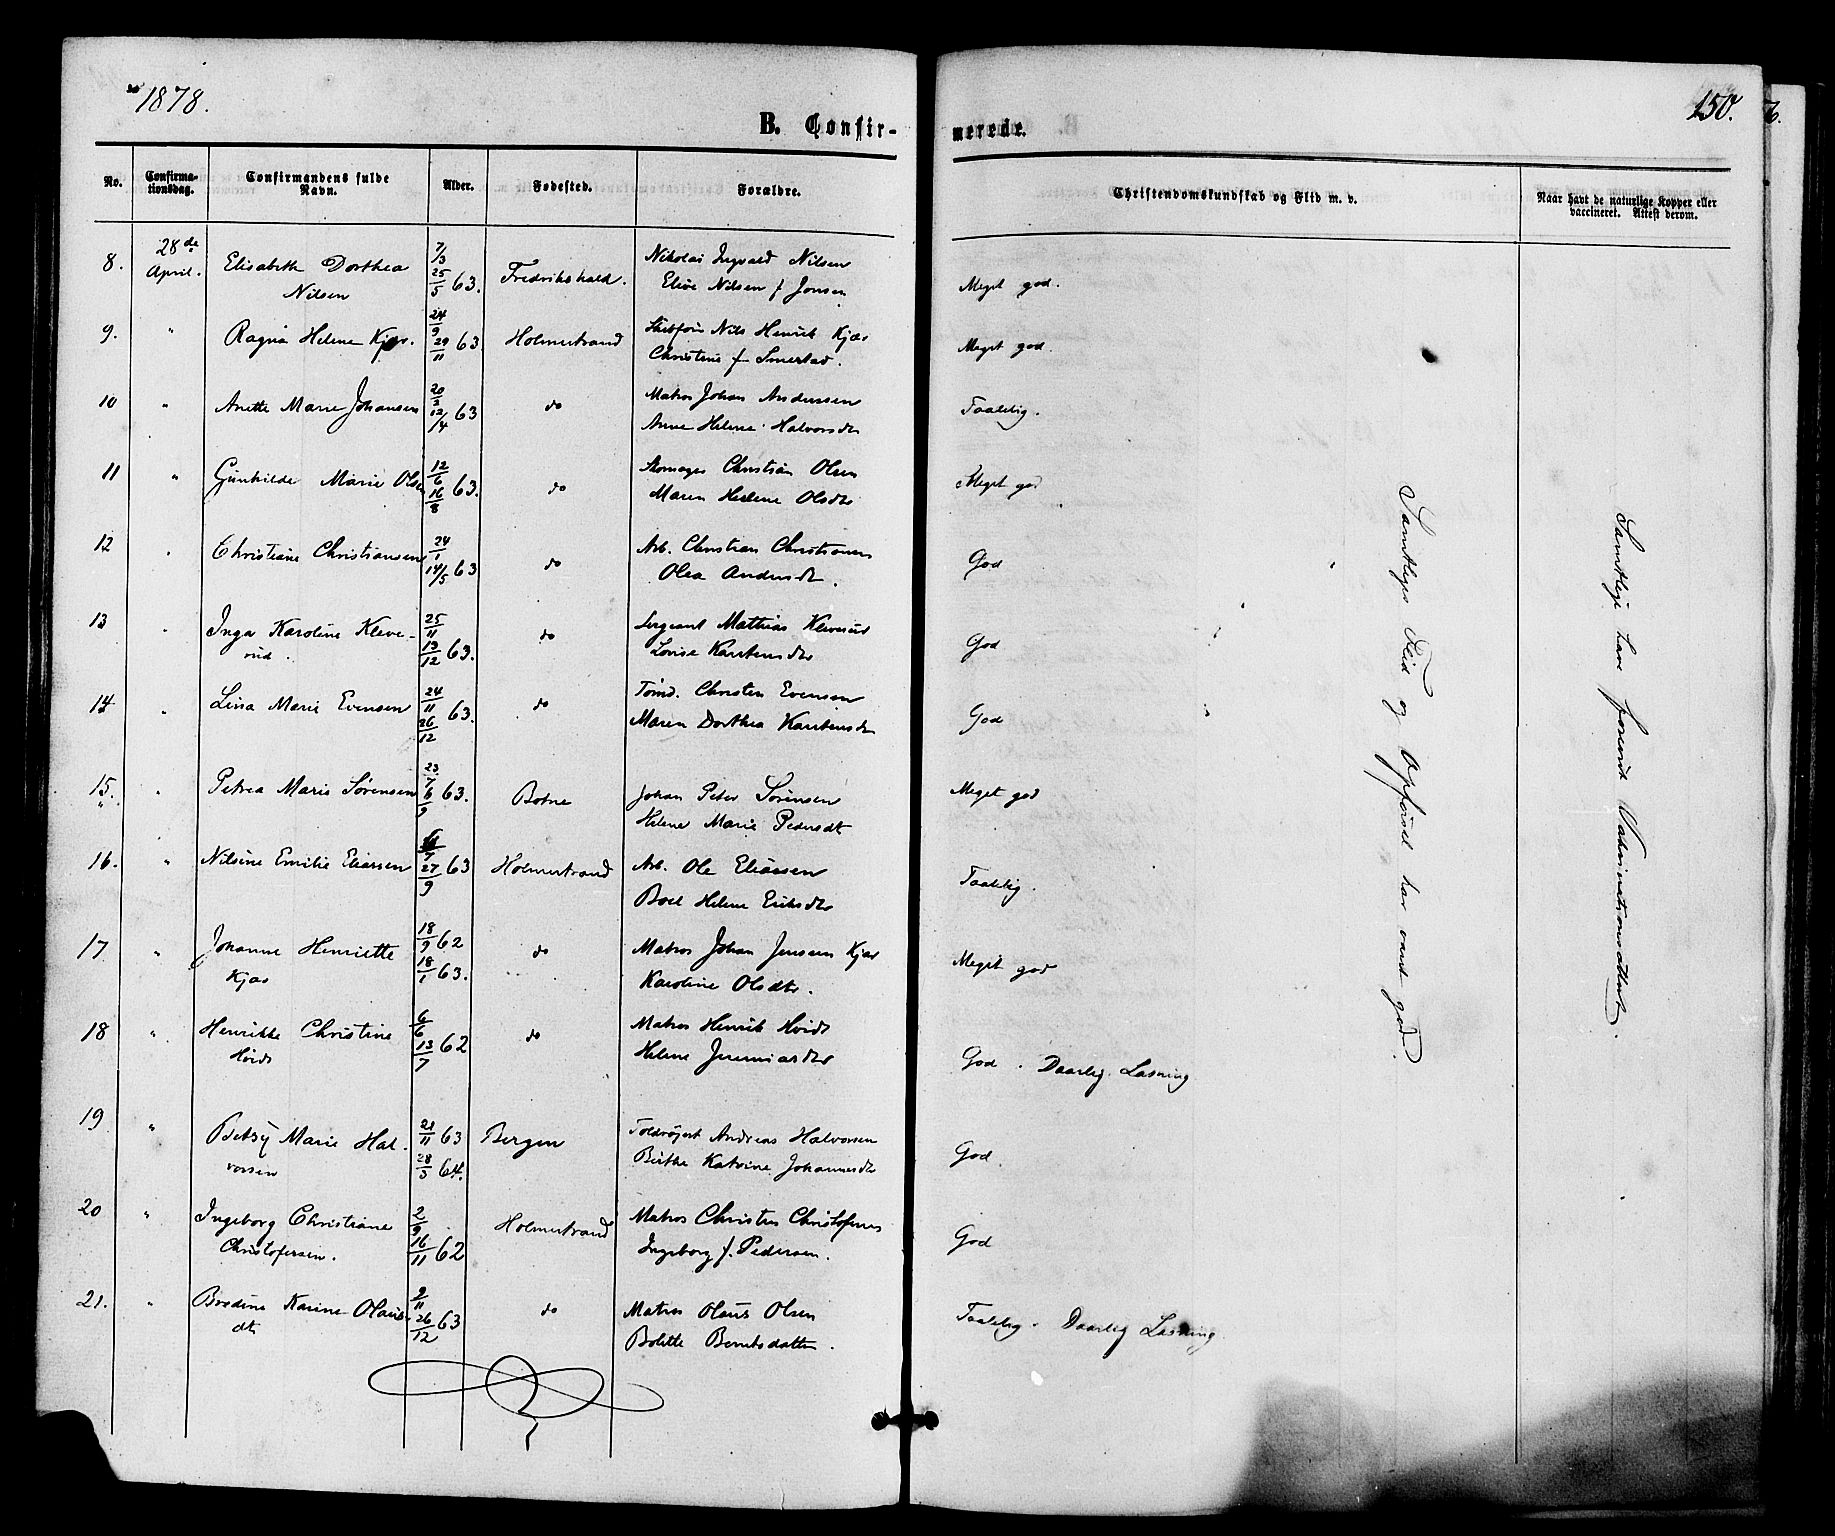 1878.
150.
B. Confir-
merede.
No.
Confirma-
tionsdag.
Confirmandens fulde
Navn.
Alder.
Fødested.
Forældre.
Christendomskundskab og Flid m. v.
Naar havt de naturlige Kopper eller
vaccineret. Attest derom.
8. 28de April. Elisabeth Dorthea 7/3 Nikolai Ingvald Nilsen
Nilsen 25/5 63. Fredrikshald. Elise Nilsen f. Jonsen Meget god.
9. " Ragna Helene Kjær. 24/9 Nils Henrik Kjær
29/11 63 Holmestrand Christine f. Smerstad. Meget god.
10 " Anette Marie Johansen 20/2 Matros Johan Anderssen
12/4 63 do Anne Helene Halvorsdtr Taalelig.
11 " Gunhilde Marie Olsen 12/6 Skomager Christian Olsen
16/8 63. do Maren Helene Olsdtr Meget god
12 " Christiane Christiansen 24/1 Arb. Christian Christiansen
14/5 63 do Olea Andersdtr. God
13 " Inga Karoline Kleve- 25/11 Sergeant Mathias Kleverud
rud. 13/12 63. do Lovise Karstensdtr God
14 " Lina Marie Evensen 24/11 Tømd. Christen Evensen
26/12 63. do Maren Dorthea Karstensdtr God
15. " Petrea Marie Sørensen 23/7 Johan Peter Sørensen
6/9 63. Botne Helene Marie Pedersdtr Meget god
16. " Nilsine Emilie Eliassen /7 Arb. Ole Eliassen
27/9 63 Holmestrand Boel Helene Eriksdtr Taalelig.
17 " Johanne Henriette 18/9 62 do Matros Johan Jensen Kjær
Kjær 18/1 63. Karoline Olsdtr. Meget god
18 " Henrikke Christine 6/6 do Matros Henrik Hvidt
Hvidt 13/7 62 Helene Jeremiasdtr God. Daarlig Læsning
19 " Betsy Marie Hal- 21/11 63 Bergen Andreas Halvorsen
vorsen 28/3 64. Birthe Katrine Johannesdtr God.
20 " Ingeborg Christiane 2/9 Holmestrand Matros Christen Christofersen
Christofersen. 16/11 62 Ingeborg f. Pedersen. God
21. " Bredine Karine Olaus- 9/11 do Matros Olaus Olsen
dtr 26/12 63 Bolette Berntsdatter. Taalelig. Daarlig Læsning
Samtliges Flid og Opførsel har været god.
Samtlige have forevist Vakcinationsattest.